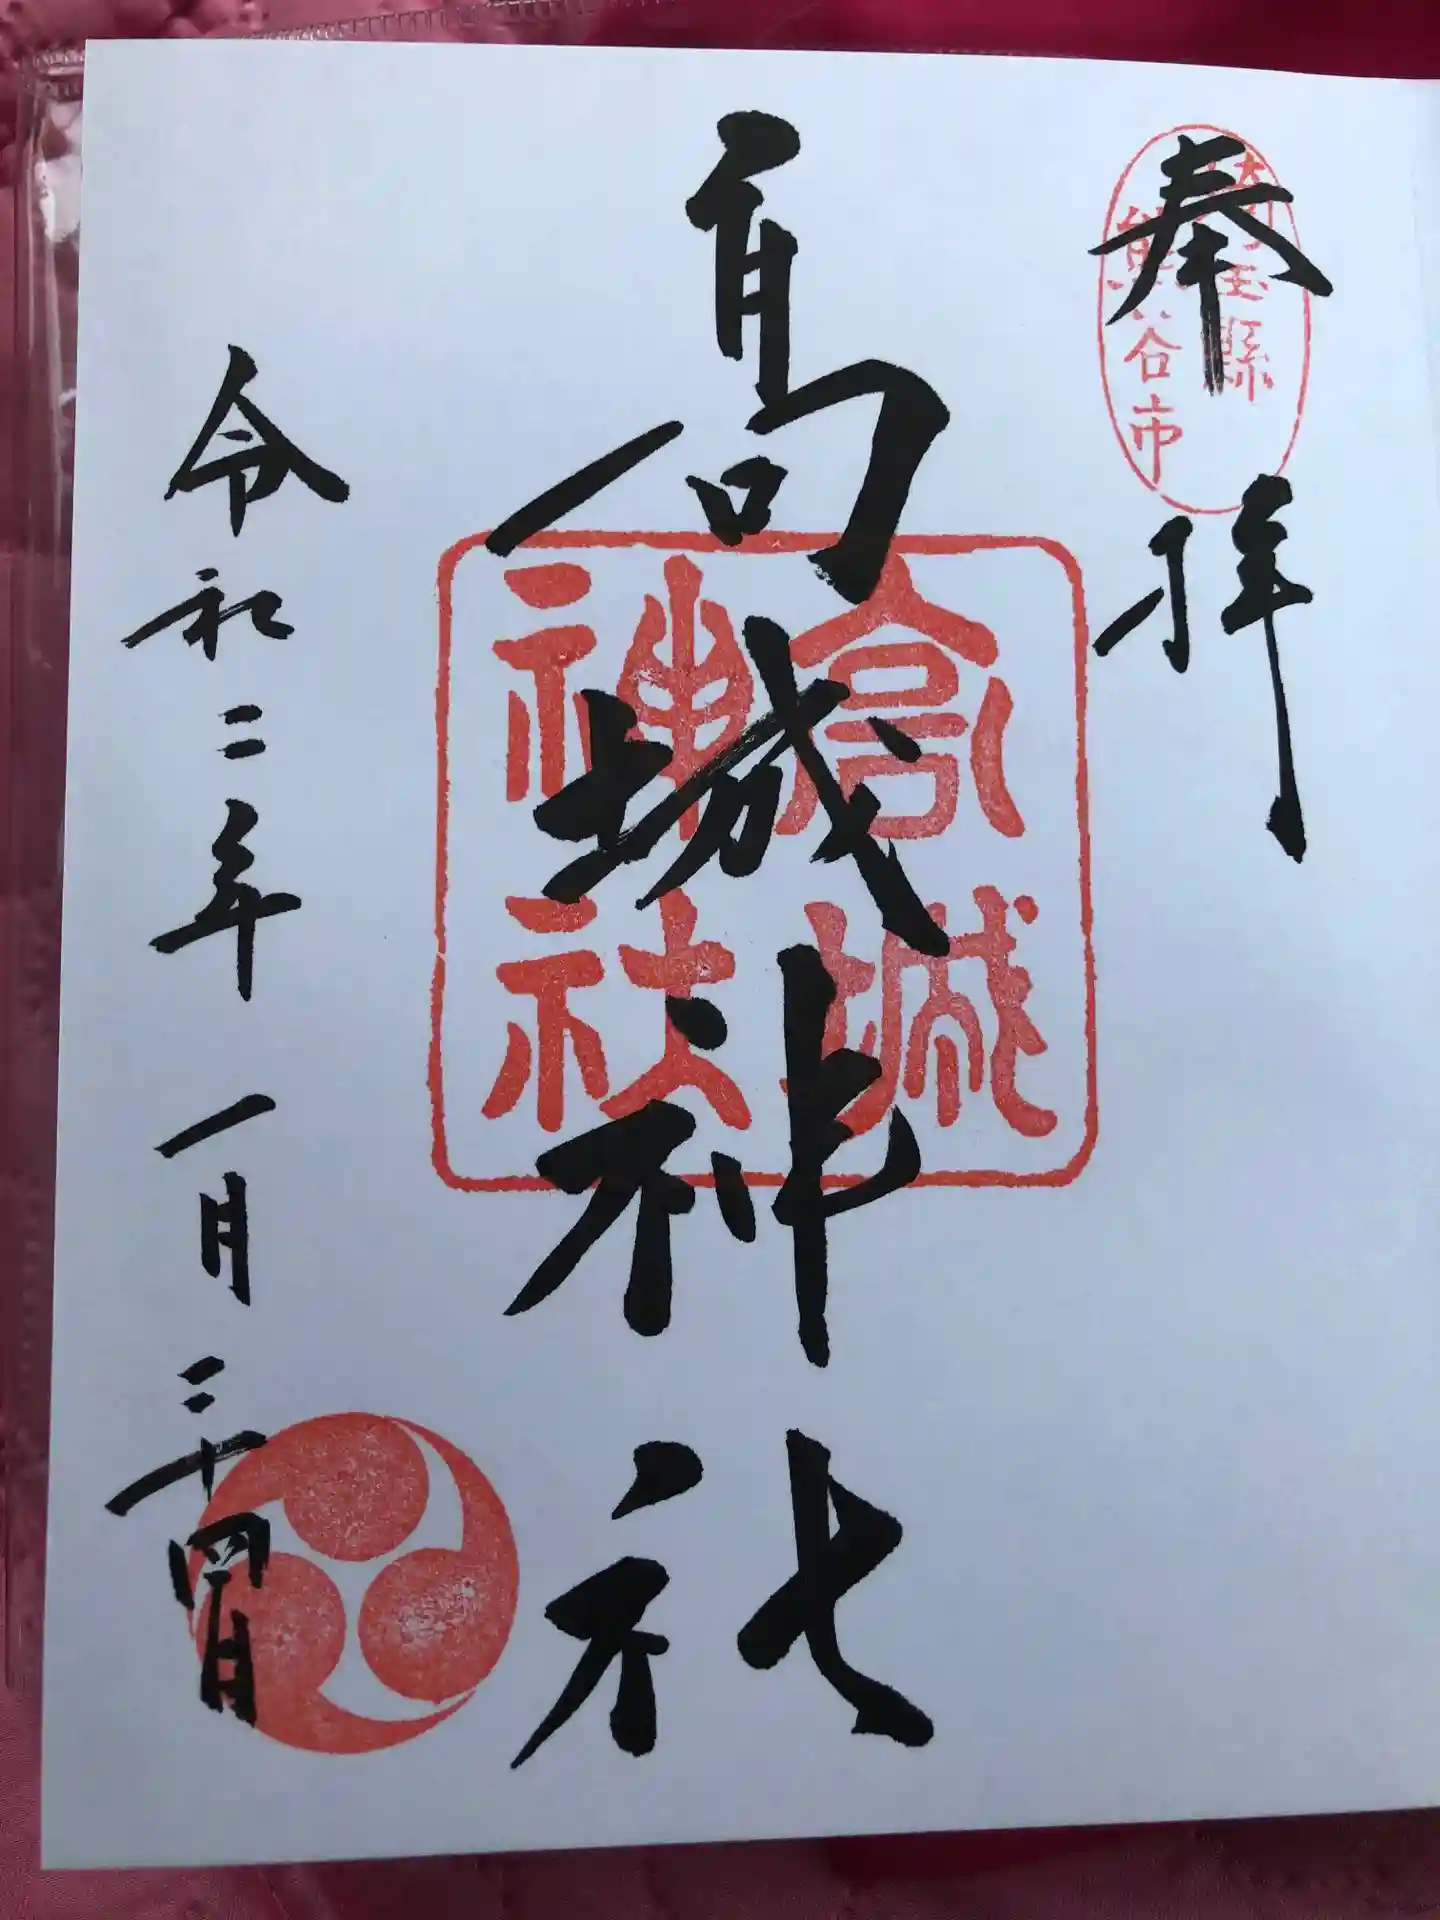 奉拝
埼玉縣
熊谷市
高城神社
高城
神社
令和二年一月二十四日